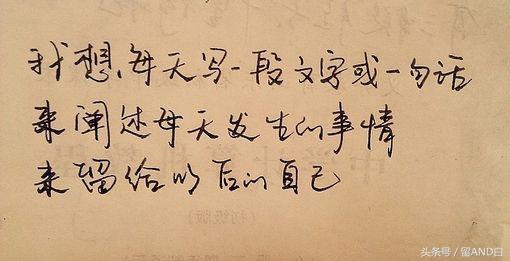 我想,每天写一段文字或一句话
来阐述每天发生的事情
来留给以后的自己
(初级版)
头条号 / 留AND白